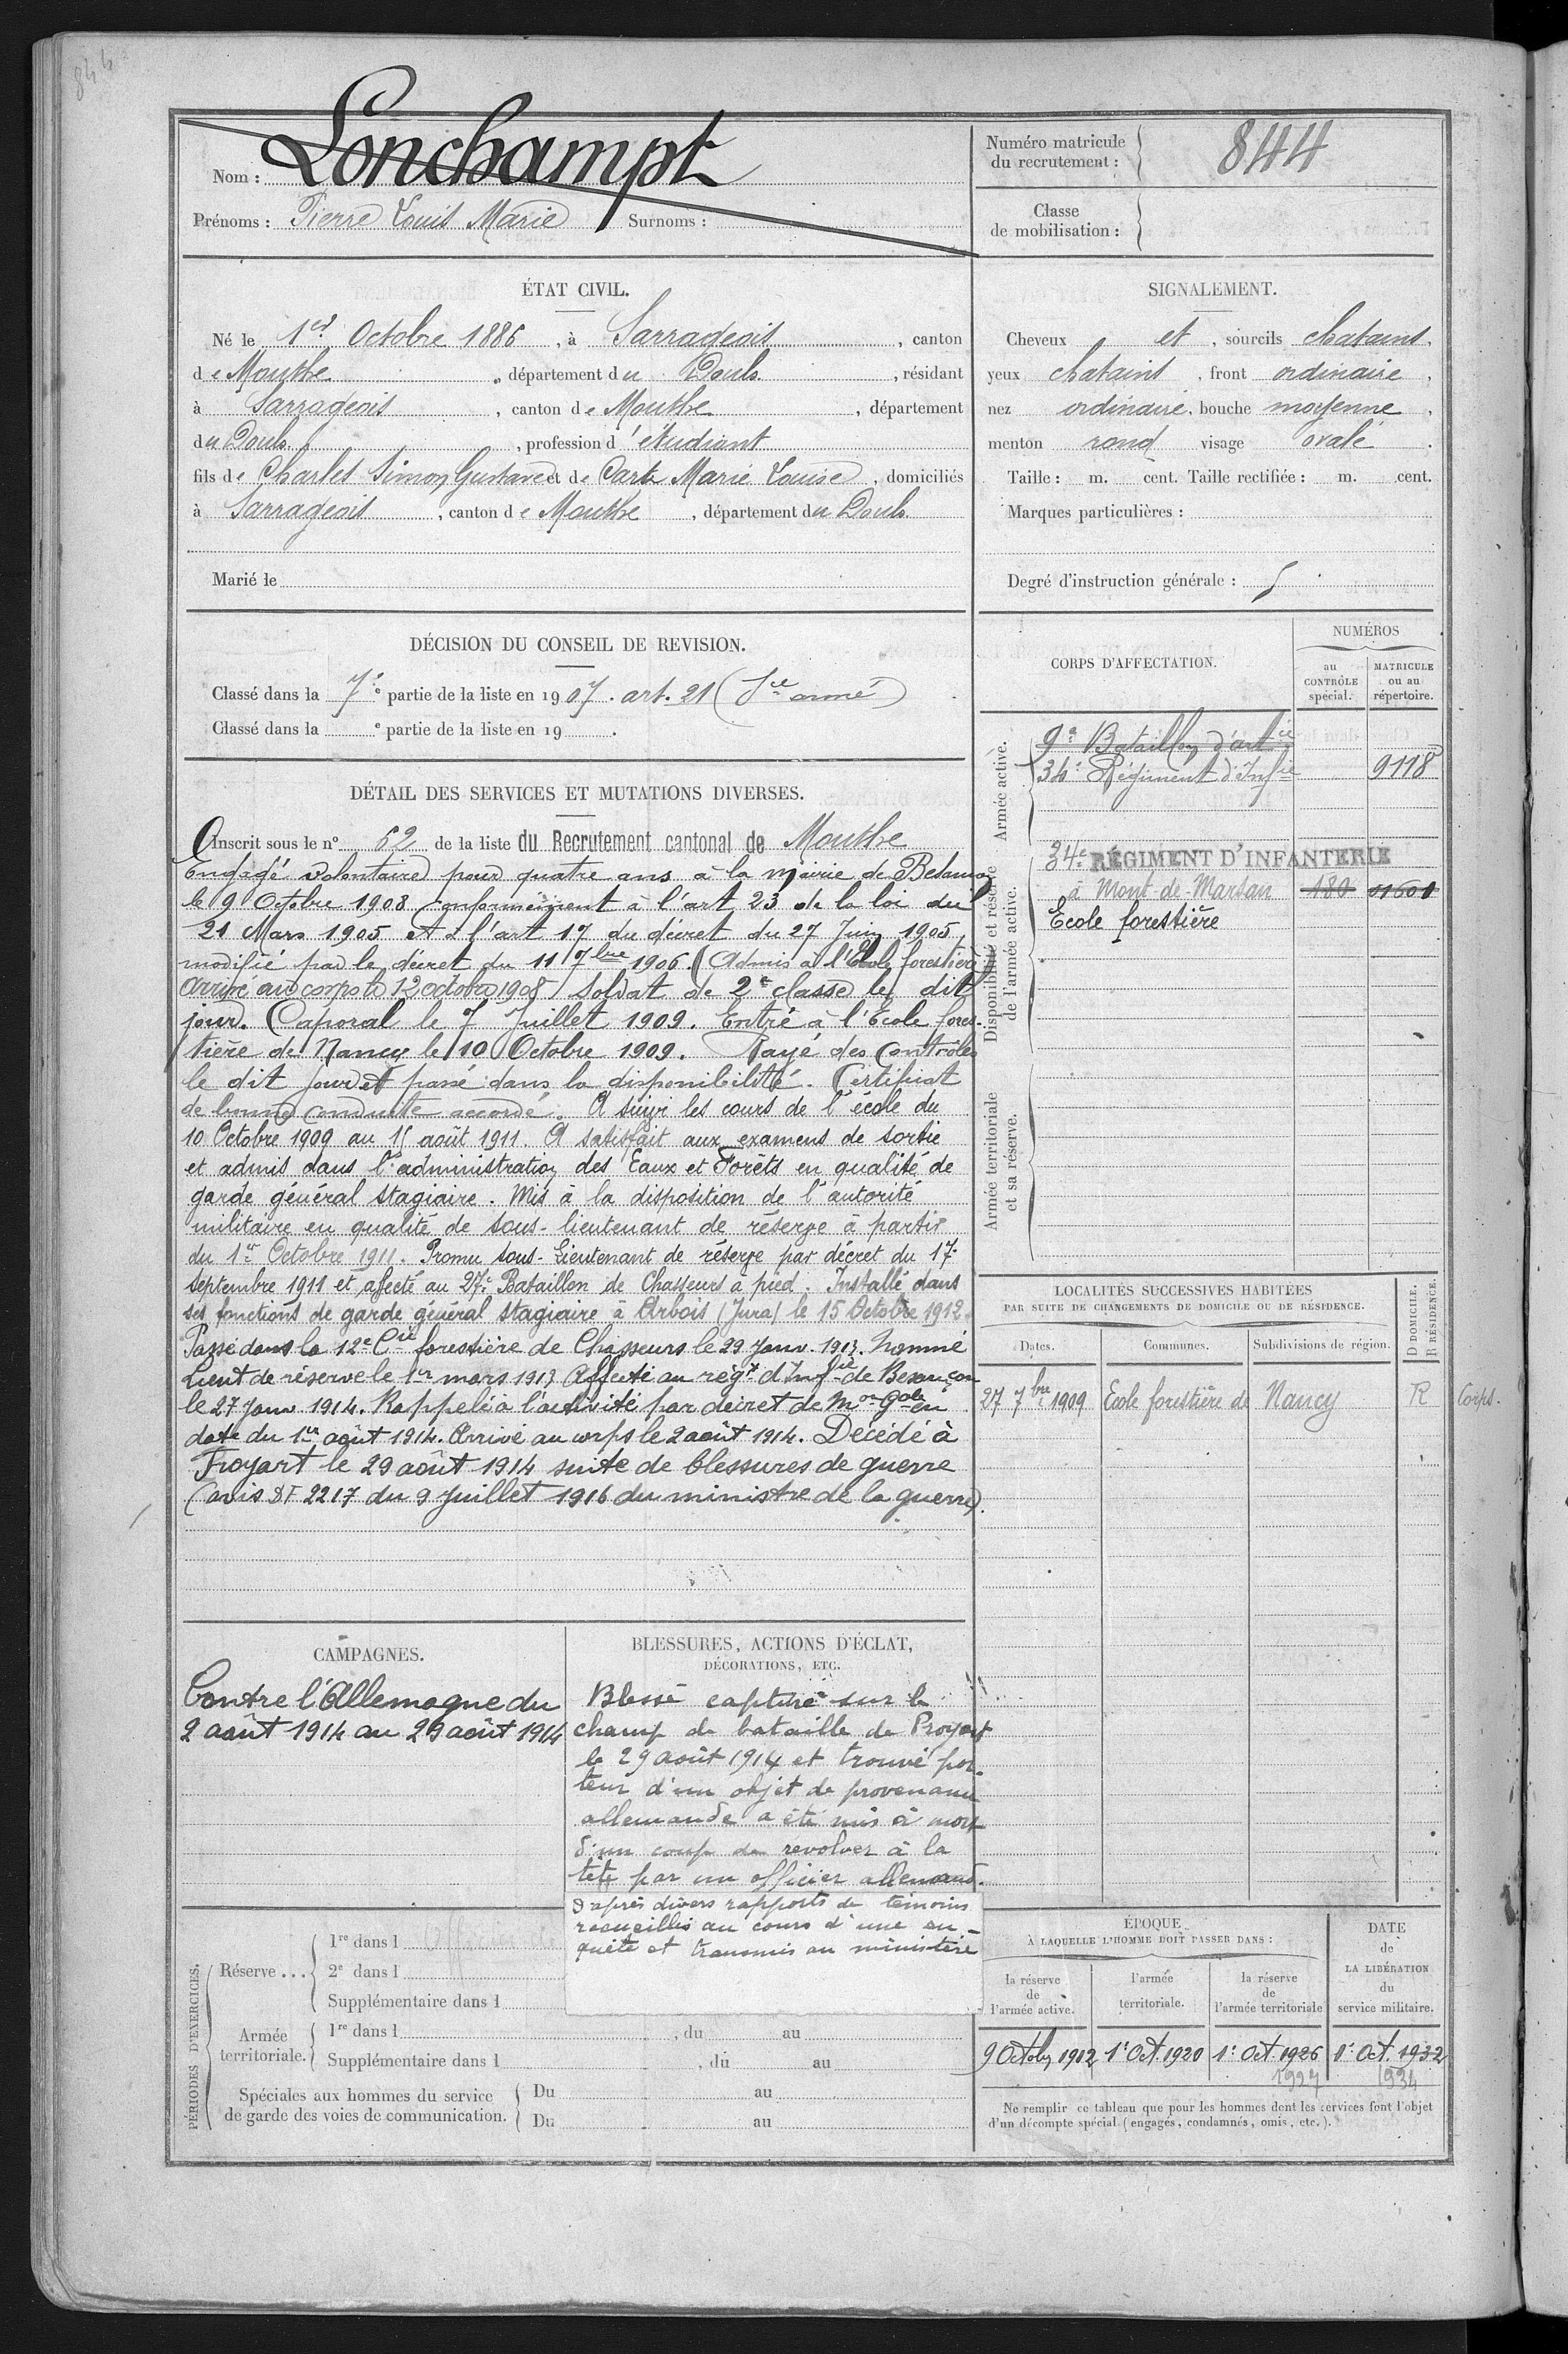 844
Nom : Lonchampt
Prénoms : Pierre Louis Marie Surnoms :
Numéro matricule du recrutement : 844
Classe de mobilisation :
ÉTAT CIVIL.
Né le 1er Octobre 1886, à Sarrageois, canton
de Mouthe, département du Doubs, résidant
à Sarrageois, canton de Mouthe, département
du Doubs, profession d'étudiant
fils de Charles Simon Gustave et de Marie Louise, domiciliés
à Sarrageois, canton de Mouthe, département du Doubs
Marié le
SIGNALEMENT.
Cheveux et, sourcils chatains,
yeux chatains, front ordinaire,
nez ordinaire, bouche moyenne,
menton rond visage ovale.
Taille : m. cent. Taille rectifiée : m. cent.
Marques particulières :
Degré d'instruction générale : 5
DÉCISION DU CONSEIL DE REVISION.
Classé dans la 7e partie de la liste en 1907. art. 21 (Sce armé)
Classé dans la e partie de la liste en 19 .
DÉTAIL DES SERVICES ET MUTATIONS DIVERSES.
Inscrit sous le n° 62 de la liste du Recrutement cantonal de Mouthe
Engagé volontaire pour quatre ans à la mairie de Besançon
le 9 Octobre 1908 conformément à l'art 23 de la loi du
21 Mars 1905 et à l'art 17 du décret du 27 Juin 1905,
modifié par le décret du 11 7bre 1906. (Admis à l'École forestière)
Arrivé au corps le 12 octobre 1908 soldat de 2e classe le dit
jour. Caporal le 7 Juillet 1909. Entré à l'École fores-
tière de Nancy le 10 Octobre 1909. Rayé des contrôles
le dit jour et passé dans la disponibilité. Certificat
de bonne conduite accordé. A suivi les cours de l'école du
10 Octobre 1909 au 15 août 1911. A satisfait aux examens de sortie
et admis dans l'administration des Eaux et Forêts en qualité de
garde général stagiaire. Mis à la disposition de l'autorité
militaire en qualité de sous-lieutenant de réserve à partir
du 1er Octobre 1911. Promu sous-Lieutenant de réserve par décret du 17
septembre 1911 et affecté au 27e Bataillon de Chasseurs à pied. Installé dans
ses fonctions de garde général stagiaire à Arbois (Jura) le 15 Octobre 1912.
Passé dans la 12e Cie forestière de Chasseurs le 29 Janv. 1913. Nommé
Lieut de réserve le 1er mars 1913 Affecté au régt d'Infie de Besançon
le 27 Janv 1914. Rappelé à l'activité par décret de Mon Gale en
date du 1er août 1914. Arrivé au corps le 2 août 1914. Décédé à
Froyart le 29 août 1914 suite de blessures de guerre
(avis DF 2217 du 9 Juillet 1916 du ministre de la guerre).
CORPS D'AFFECTATION.
NUMÉROS
au CONTRÔLE spécial.
MATRICULE ou au répertoire.
Armée active.
9e Bataillon d'artie
34e Régiment d'Infie 9118
Disponibilité et réserve de l'armée active.
34e RÉGIMENT D'INFANTERIE
à Mont-de-Marsan 180 01601
École forestière
Armée territoriale et sa réserve.
LOCALITÉS SUCCESSIVES HABITÉES
PAR SUITE DE CHANGEMENTS DE DOMICILE OU DE RÉSIDENCE.
Dates. Communes. Subdivisions de région. D DOMICILE. R RÉSIDENCE.
27 7bre 1909 Ecole forestière de Nancy R Corps.
CAMPAGNES.
Contre l'Allemagne du
2 août 1914 au 29 août 1914
BLESSURES, ACTIONS D'ÉCLAT,
DÉCORATIONS, ETC.
Blessé capturé sur le
champ de bataille de Proyart
le 29 août 1914 et trouvé por-
teur d'un objet de provenance
allemande a été mis à mort
d'un coup de revolver à la
tête par un officier allemand.
D'après divers rapports de témoins
recueillis au cours d'une en-
quête et transmis au ministère
PÉRIODES D'EXERCICES.
Réserve... 1re dans l
2e dans l
Supplémentaire dans l
Armée territoriale. 1re dans l , du au
Supplémentaire dans l , du au
Spéciales aux hommes du service de garde des voies de communication. Du au
Du au
ÉPOQUE
À LAQUELLE L'HOMME DOIT PASSER DANS :
la réserve de l'armée active.
l'armée territoriale.
la réserve de l'armée territoriale
DATE de LA LIBÉRATION du service militaire.
9 Octobre 1912 1er Oct. 1920 1er Oct 1926 1er Oct. 1932
1927 1934
Ne remplir ce tableau que pour les hommes dont les services font l'objet
d'un décompte spécial (engagés, condamnés, omis, etc.).